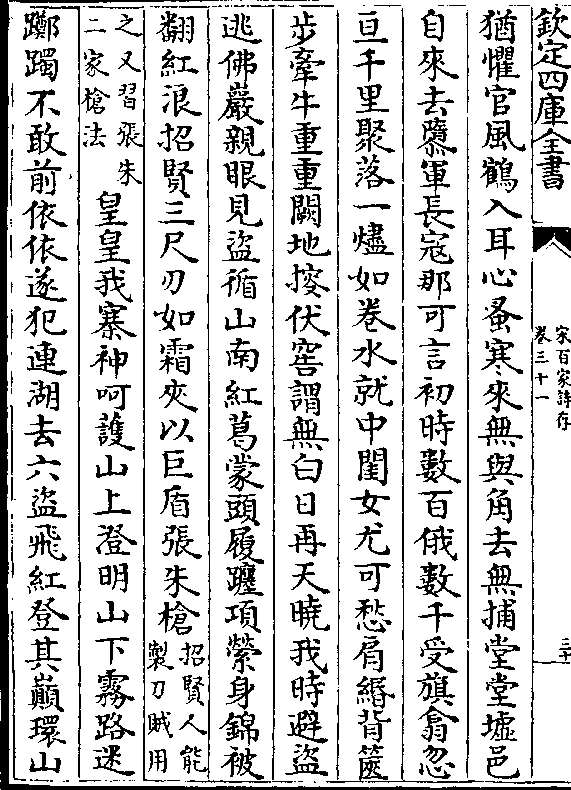 欽定四庫全書
宋百家詩存
卷三十一
三十
猶懼官風鶴入耳心蚤寒來無與角去無捕堂堂墟邑
自來去隳軍長寇那可言初時數百俄數千受旗翕忽
亘千里聚落一燼如卷水就中閨女尤可愁肩緡背篋
步牽牛重重闕地按伏窖謂無白日再天曉我時避盜
逃佛嚴親眼見盜循山南紅葛蒙頭履躔項縈身錦被
翻紅浪招賢三尺刃如霜夾以巨盾張朱槍招賢人能
製刀賊用
之又習張朱
二家槍法
皇皇我寨神呵䕶山上澄明山下霧路迷
躑躅不敢前依依遂犯連湖去六盜飛紅登其巔環山